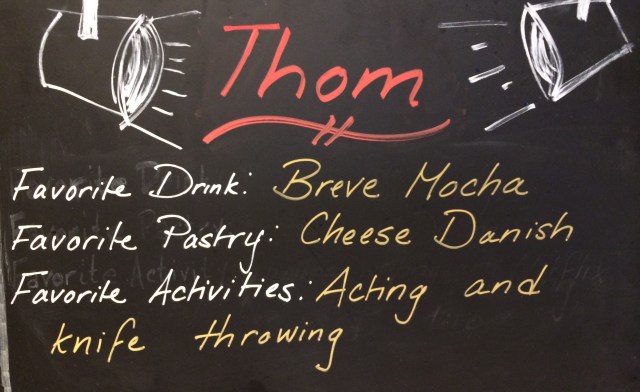 Thom
Favorite Drink: Breve Mocha
Favorite Pastry: Cheese Danish
Favorite Activities: Acting and
knife throwing